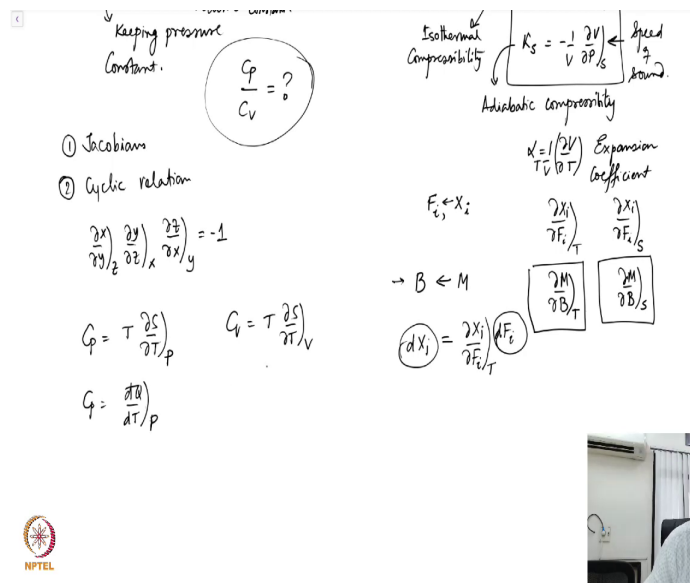 Keeping pressure
Constant.
Cp/Cv = ?
① Jacobians
② Cyclic relation
∂x/∂y)z ∂y/∂z)x ∂z/∂x)y = -1
Cp = T ∂S/∂T)p
Cv = T ∂S/∂T)v
Cp = đQ/dT)p
Isothermal
Compressibility
Ks = -1/V ∂V/∂P)s ← Speed of sound.
Adiabatic compressibility
αT = 1/V (∂V/∂T) Expansion Coefficient
Fi, ← Xi
∂Xi/∂Fi)T ∂Xi/∂Fi)S
→ B ← M
∂M/∂B)T ∂M/∂B)S
dXj = ∂Xj/∂Fi)T dFi
NPTEL